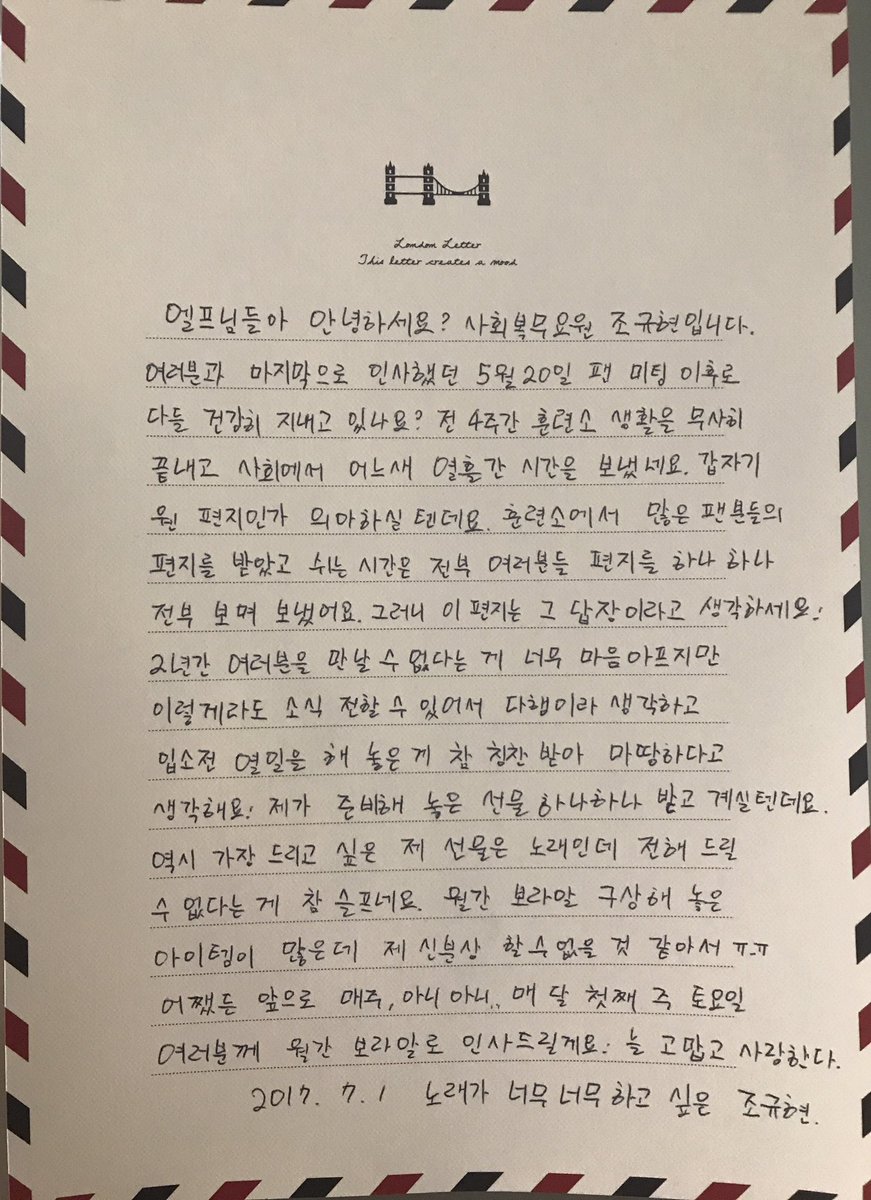 London Letter
This letter creates a mood
엘프님들아 안녕하세요? 사회복무요원 조규현입니다.
여러분과 마지막으로 인사했던 5월 20일 팬 미팅 이후로
다들 건강히 지내고 있나요? 전 4주간 훈련소 생활을 무사히
끝내고 사회에서 어느새 열흘간 시간을 보냈네요. 갑자기
웬 편지인가 의아하실 텐데요. 훈련소에서 많은 팬분들의
편지를 받았고 쉬는 시간은 전부 여러분들 편지를 하나 하나
전부 보며 보냈어요. 그러니 이 편지는 그 답장이라고 생각하세요!
2년간 여러분을 만날 수 없다는 게 너무 마음아프지만
이렇게라도 소식 전할 수 있어서 다행이라 생각하고
입소전 열일을 해 놓은 게 참 칭찬 받아 마땅하다고
생각해요! 제가 준비해 놓은 선물 하나하나 받고 계실텐데요.
역시 가장 드리고 싶은 제 선물은 노래인데 전해 드릴
수 없다는 게 참 슬프네요. 월간 보라말 구상해 놓은
아이템이 많은데 제 신분상 할 수 없을 것 같아서 ㅠ_ㅠ
어쨌든 앞으로 매주, 아니 아니.. 매 달 첫째 주 토요일
여러분께 월간 보라말로 인사드릴게요! 늘 고맙고 사랑한다.
2017. 7. 1 노래가 너무너무하고 싶은 조규현.